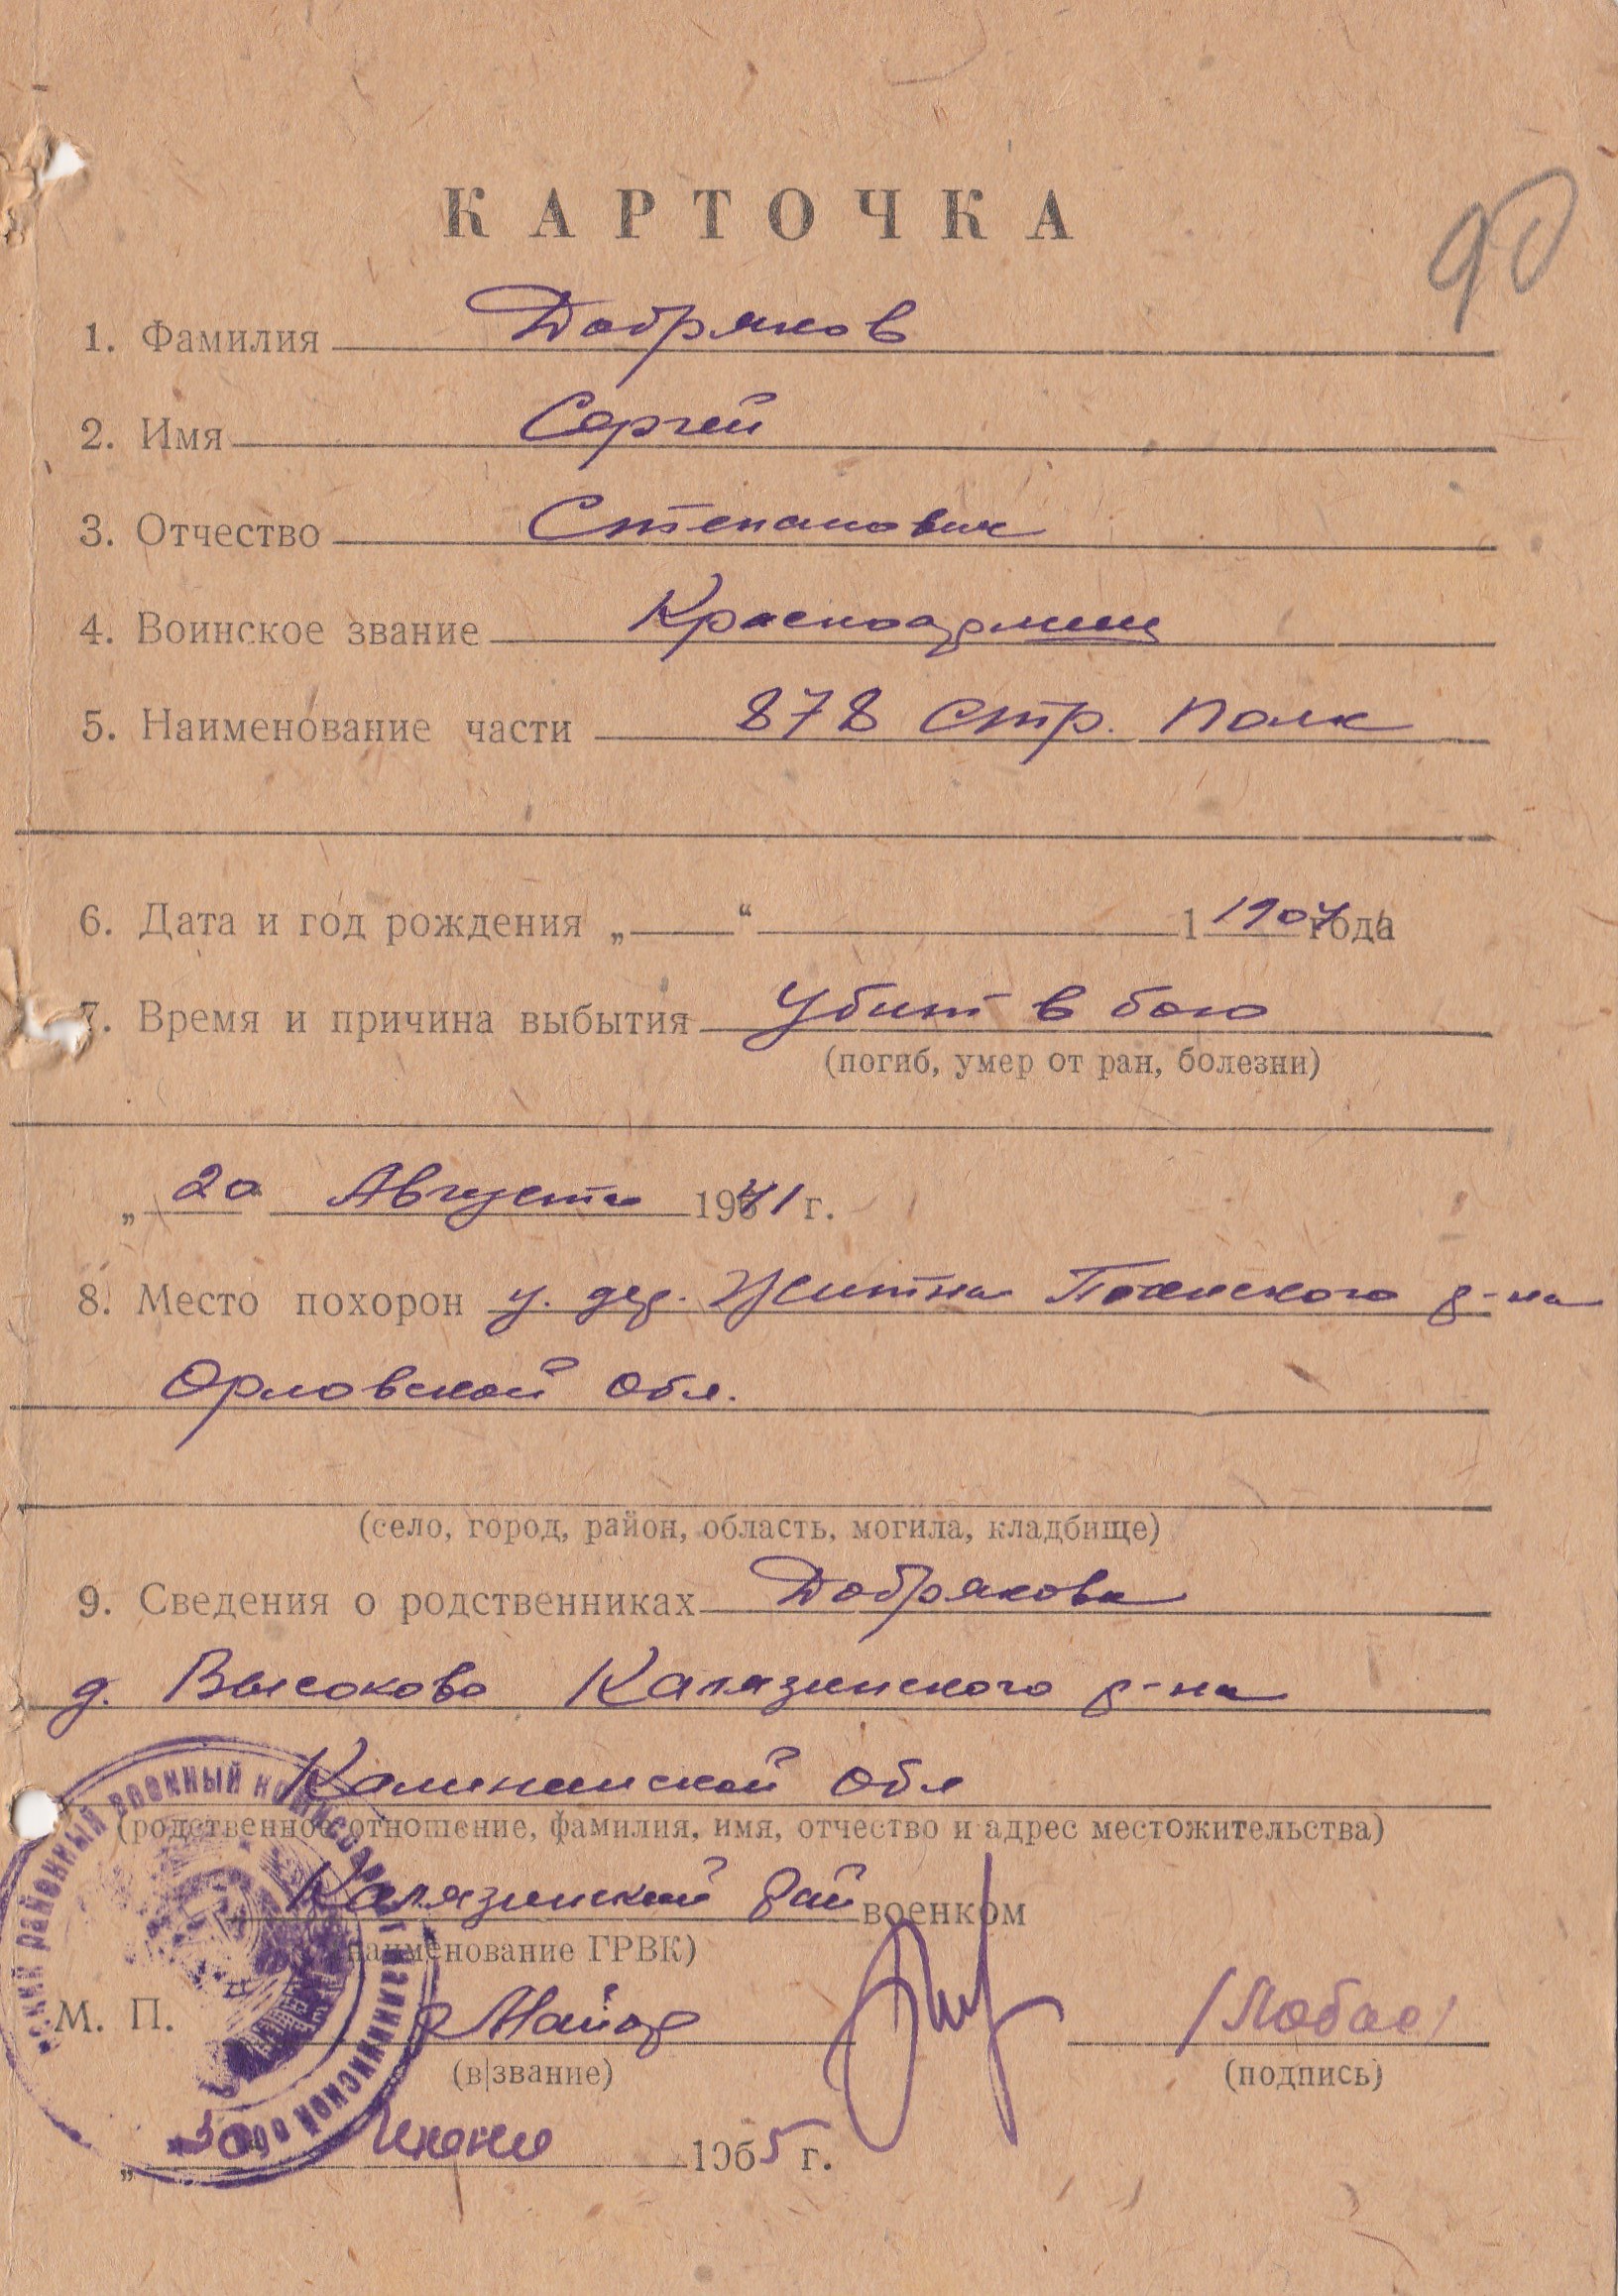 90
КАРТОЧКА
1. Фамилия Добряков
2. Имя Сергей
3. Отчество Степанович
4. Воинское звание Красноармеец
5. Наименование части 878 стр. полк
6. Дата и год рождения „ “ 1 1907 года
7. Время и причина выбытия Убит в бою
(погиб, умер от ран, болезни)
„20 Августа 1941 г.
8. Место похорон у. дер. Житня р-на
Орловской обл.
(село, город, район, область, могила, кладбище)
9. Сведения о родственниках Добрякова
д. Высоково Калязинского р-на
Калининской обл
(родственное отношение, фамилия, имя, отчество и адрес местожительства)
Калязинский рай военком
(наименование ГРВК)
М. П. Майор
(в/звание) (подпись)
„30 Июня 1965 г.
районный военный комиссариат Калининской обл.